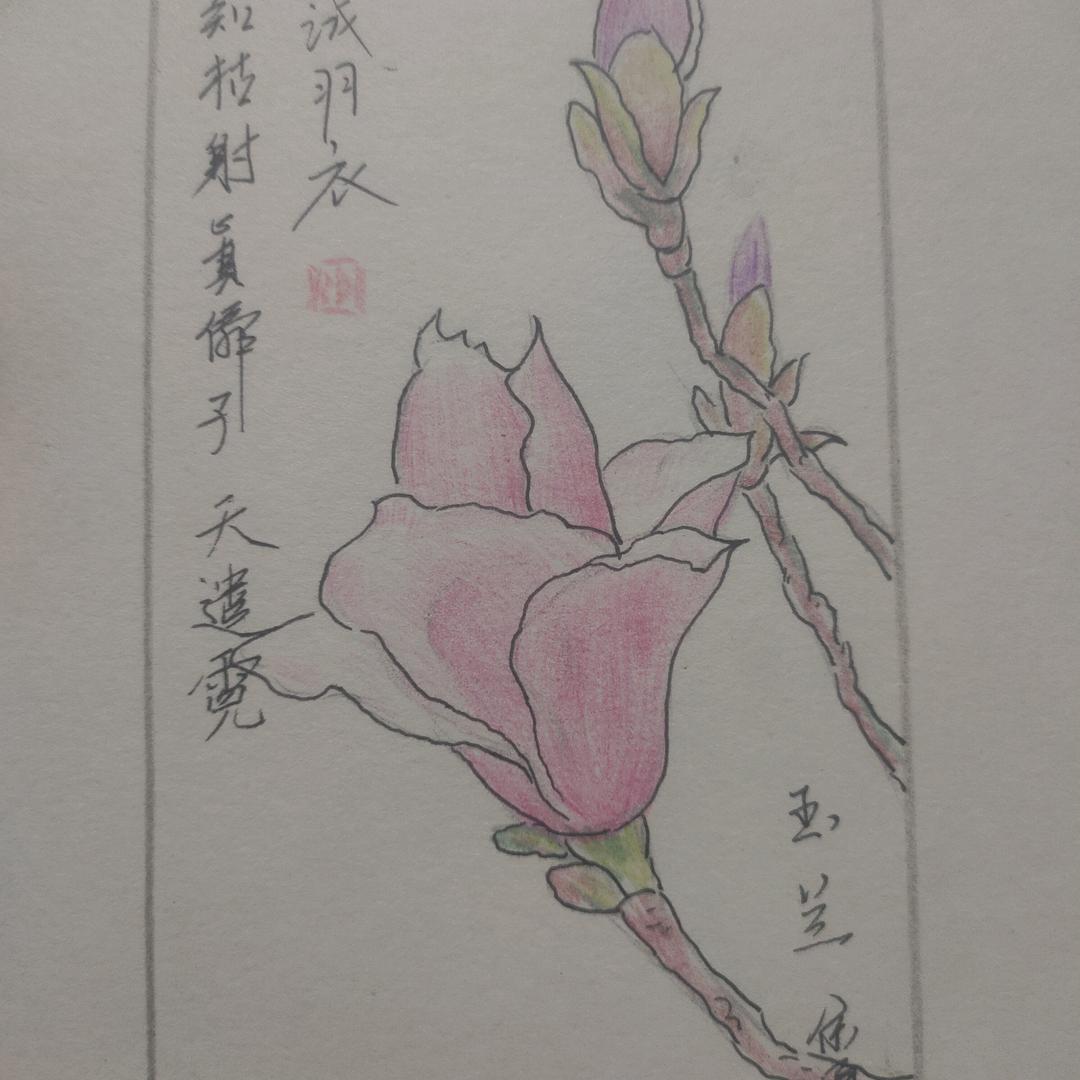 知姑射眞僊子 天遣霓
试羽衣
玉兰